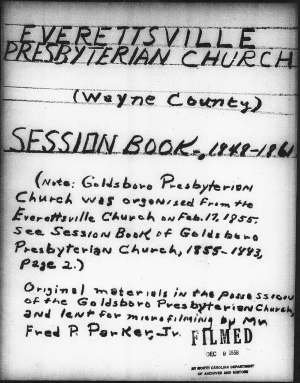 EVERETTSVILLE
PRESBYTERIAN CHURCH
(Wayne County)
SESSION BOOK., 1848-1861
(Note: Goldsboro Presbyterian
Church was organised from the
Everettsville Church on Feb. 17, 1855.
See Session Book of Goldsboro
Presbyterian Church, 1855-1893,
Page 2.)
Original materials in the possession
of the Goldsboro Presbyterian Church,
and lent for microfilming by Mr.
Fred P. Parker, Jr.
FILMED
DEC 8 1958
BY NORTH CAROLINA DEPARTMENT
OF ARCHIVES AND HISTORY